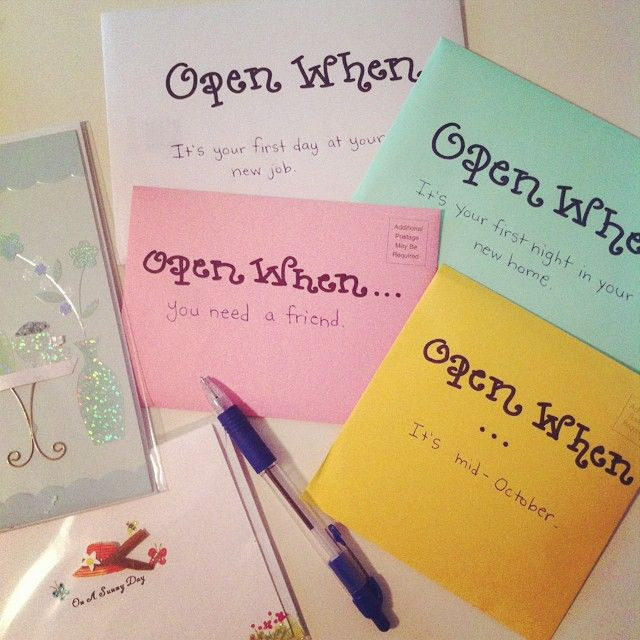 Open When
It's your first day at your
new job.
Open Whe
It's your first night in your
new home.
Additional
Postage
May Be
Required
Open When...
you need a friend.
Open When
...
It's mid-October.
On A Sunny Day